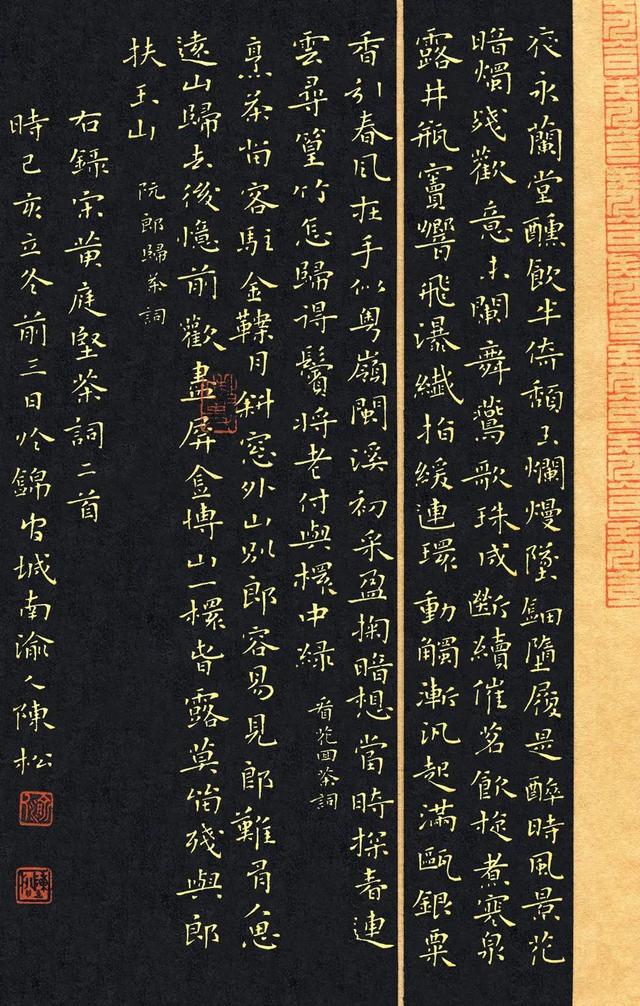 夜永蘭堂醺飲半倚頹玉爛熳墜鈿墮履是醉時風景花
暗燭殘歡意未闌舞燕歌珠成斷續催茗飲旋煮寒泉
露井瓶竇響飛瀑纎指緩連環動觸漸汎起滿甌銀粟
香引春風在手似粵嶺閩溪初采盈掬暗想當時探春連
雲尋篁竹怎歸得鬢將老付與桮中綠 看花回茶詞
烹茶留客駐金鞍月斜窓外山別郎容易見郎難有人思
遠山歸去後憶前歡畫屏金博山一桮春露莫留殘與郎
扶玉山 阮郎歸茶詞
右錄宋黄庭堅茶詞二首
時己亥立冬前三日於錦官城南渝人陳松